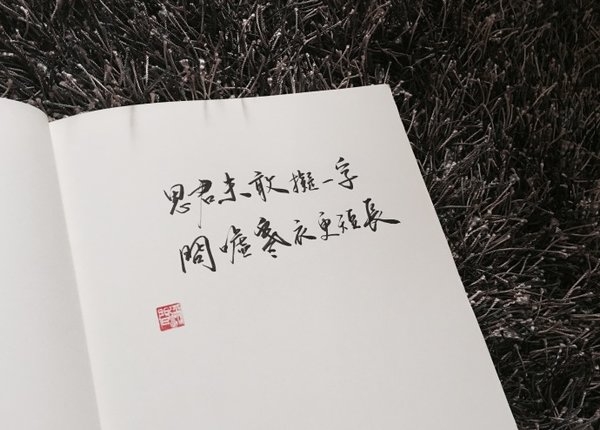 思君未敢擬一字
問噓寒衣更短長